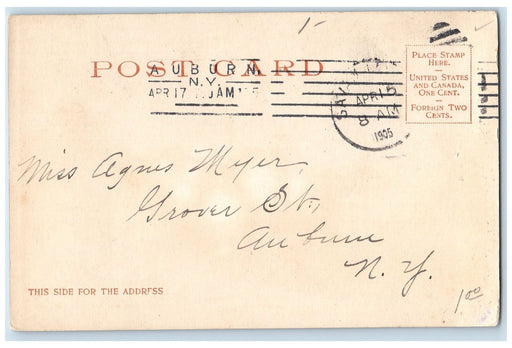 POST CARD
AUBURN
N.Y.
APR 17
APR 15
8 AM
1905
PLACE STAMP
HERE.
UNITED STATES
AND CANADA,
ONE CENT.
FOREIGN TWO
CENTS.
Miss Agnes Meyer,
Grover St.,
Auburn
N.Y.
THIS SIDE FOR THE ADDRESS
1.00